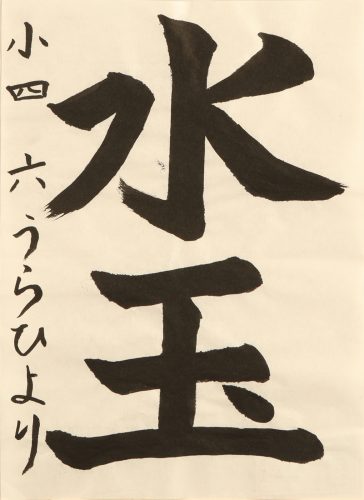 水玉
小四 六うらひより